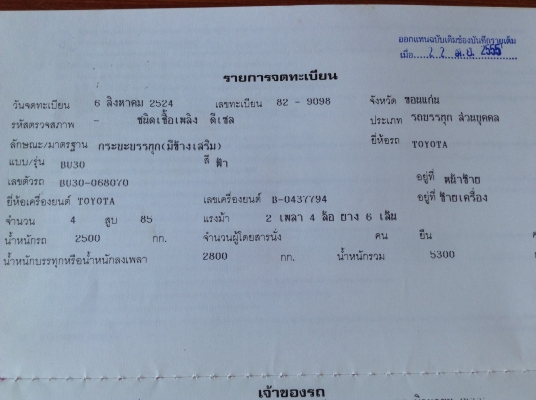 ออกแทนฉบับเดิมช่องบันทึกรายเดิม
เมื่อ 22 พ.ย. 2555
รายการจดทะเบียน
วันจดทะเบียน 6 สิงหาคม 2524 เลขทะเบียน 82 - 9098 จังหวัด ขอนแก่น
รหัสตรวจสภาพ - ชนิดเชื้อเพลิง ดีเซล ประเภท รถบรรทุก ส่วนบุคคล
ลักษณะ/มาตรฐาน กระยะบรรทุก(มีข้างเสริม) ยี่ห้อรถ TOYOTA
แบบ/รุ่น BU30 สี ฟ้า
เลขตัวรถ BU30-068070 อยู่ที่ หน้าซ้าย
ยี่ห้อเครื่องยนต์ TOYOTA เลขเครื่องยนต์ B-0437794 อยู่ที่ ซ้ายเครื่อง
จำนวน 4 สูบ 85 แรงม้า 2 เพลา 4 ล้อ ยาง 6 เส้น
น้ำหนักรถ 2500 กก. จำนวนผู้โดยสารนั่ง คน ยืน
น้ำหนักบรรทุกหรือน้ำหนักลงเพลา 2800 กก. น้ำหนักรวม 5300
เจ้าของรถ